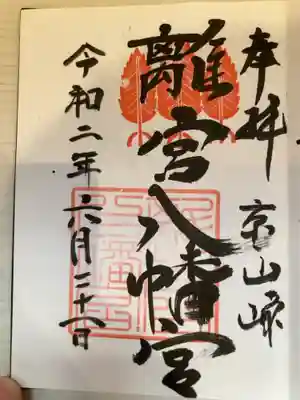 奉拝 京山崎
離宮八幡宮
令和二年六月二十一日